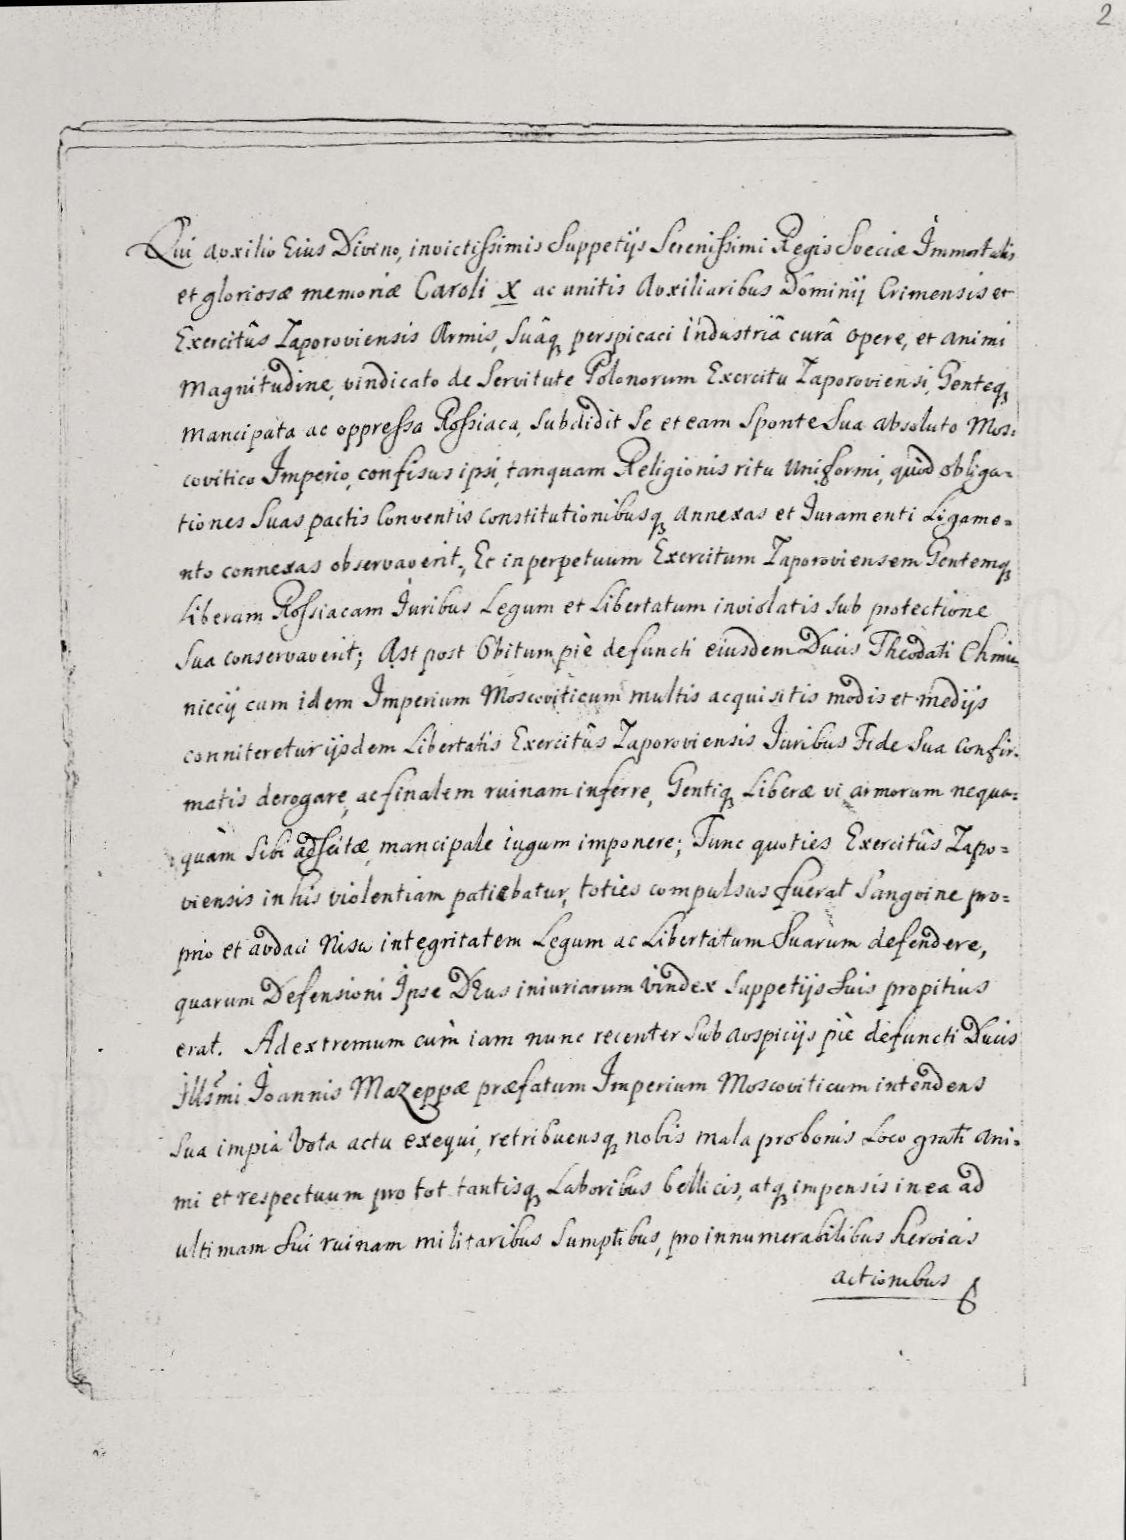 2
Qui auxilio Eius Divino, invictissimis Suppetijs Serenissimi Regis Sveciæ Immortalis
et gloriosæ memoriæ Caroli X ac unitis Auxiliaribus Dominij Crimensis et
Exercitûs Zaporoviensis Armis, Suâq perspicaci industriâ curâ opere, et animi
Magnitudine, vindicato de Servitute Polonorum Exercitu Zaporoviensi, Genteq
mancipata ac oppressa Rossiaca, Subdidit Se et eam Sponte Sua absoluto Mos=
covitico Imperio, confisus ipsi, tanquam Religionis ritu Uniformi, quòd obliga=
tiones Suas pactis Conventis Constitutionibusq annexas et Iuramenti Ligame=
nto connexas observaverit, Et in perpetuum Exercitum Zaporoviensem Gentemq
Liberam Rossiacam Iuribus Legum et Libertatum inviolatis sub protectione
Sua conservaverit; Ast post Obitum piè defuncti eiusdem Ducis Theodati Chmiel
niccij cum idem Imperium Moscoviticum multis acquisitis modis et medijs
conniteretur ijsdem Libertatis Exercitûs Zaporoviensis Iuribus Fide Sua Confir=
matis derogare, ac finalem ruinam inferre, Gentiq Liberæ vi armorum nequa=
quàm Sibi adscitæ, mancipale iugum imponere; Tunc quoties Exercitûs Zapo=
viensis in his violentiam patiæbatur, toties compulsus fuerat Sangvine pro=
prio et audaci Nisu integritatem Legum ac Libertatum Suarum defendere,
quarum Defensioni Ipse DEus iniuriarum Vindex Suppetijs Suis propitius
erat. Ad extremum cùm iam nunc recenter Sub auspicijs piè defuncti Ducis
Illsmi Ioannis Mazeppæ præfatum Imperium Moscoviticum intendens
Sua impia Vota actu exequi, retribuensq nobis mala pro bonis Loco grati ani=
mi et respectuum pro tot tantisq Laboribus bellicis, atq impensis in ea ad
ultimam Sui ruinam militaribus Sumptibus, pro innumerabilibus heroicis
actionibus